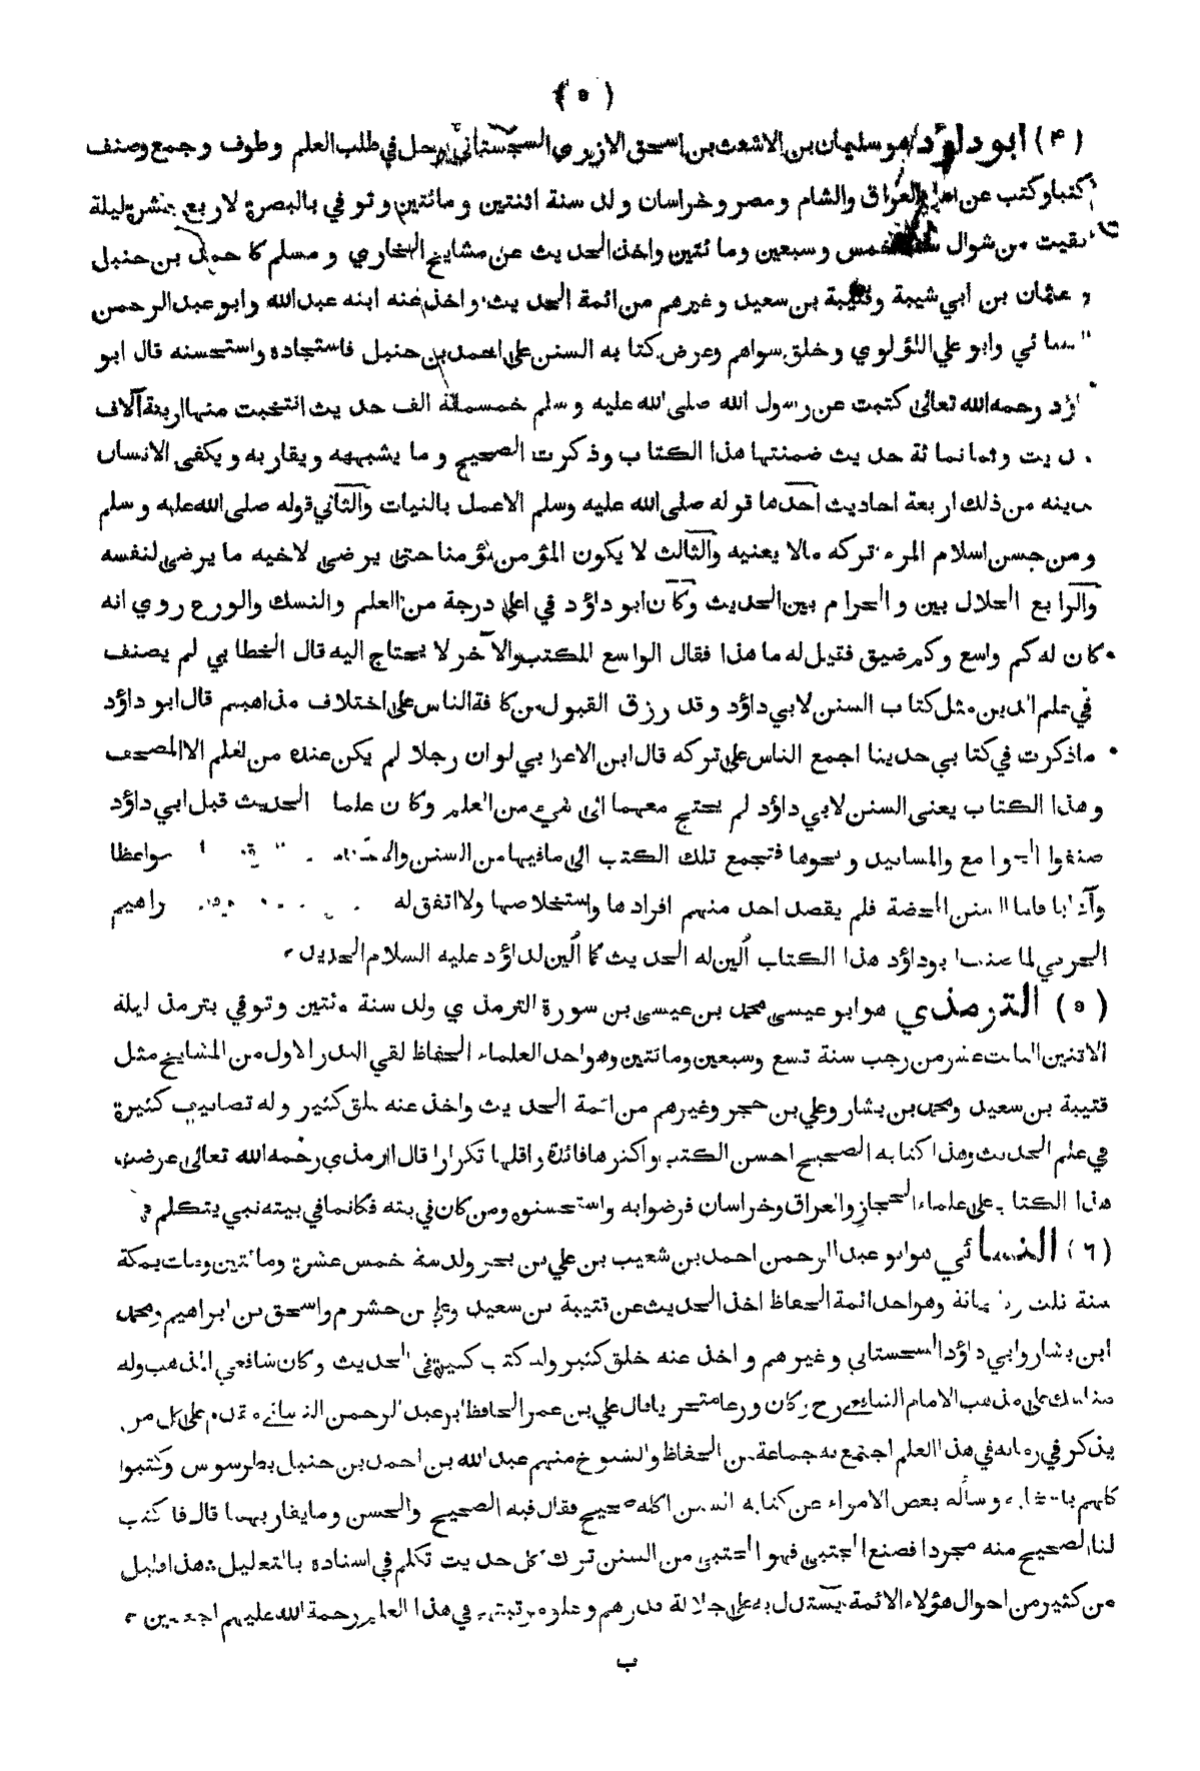 ( ٥ )
( ۴ ) ابو داؤد هو سليمان بن الاشعث بن اسحق الازدي السجستاني رحل في طلب العلم وطوف وجمع وصنف
كتبا وكتب عن اهل العراق والشام ومصر وخراسان ولد سنة اثنتين ومائتين وتوفي بالبصرة لاربع عشرة ليلة
بقيت من شوال سنة خمس وسبعين ومائتين واخذ الحديث عن مشايخ البخاري ومسلم كاحمد بن حنبل
وعثمان بن ابي شيبة وقتيبة بن سعيد وغيرهم من ائمة الحديث واخذ عنه ابنه عبد الله وابو عبد الرحمن
النسائي وابو علي اللؤلوي وخلق سواهم وعرض كتابه السنن على احمد بن حنبل فاستجاده واستحسنه قال ابو
داؤد رحمه الله تعالى كتبت عن رسول الله صلى الله عليه وسلم خمسمائة الف حديث انتخبت منها اربعة آلاف
حديث وثمانمائة حديث ضمنتها هذا الكتاب وذكرت الصحيح وما يشبهه ويقاربه ويكفى الانسان
لدينه من ذلك اربعة احاديث احدها قوله صلى الله عليه وسلم الاعمل بالنيات والثاني قوله صلى الله عليه وسلم
ومن حسن اسلام المرء تركه مالا يعنيه والثالث لا يكون المؤمن مؤمنا حتى يرضى لاخيه ما يرضى لنفسه
والرابع الحلال بين والحرام بين الحديث وكان ابو داؤد في اعلى درجة من العلم والنسك والورع روي انه
كان له كم واسع وكم ضيق فقيل له ما هذا فقال الواسع للكتب والآخر لا يحتاج اليه قال الخطابي لم يصنف
في علم الدين مثل كتاب السنن لابي داؤد وقد رزق القبول من كافة الناس على اختلاف مذاهبهم قال ابو داؤد
ماذكرت في كتابي حديثا اجمع الناس على تركه قال ابن الاعرابي لو ان رجلا لم يكن عنده من العلم الا المصحف
وهذا الكتاب يعنى السنن لابي داؤد لم يحتج معهما الى شيء من العلم وكان علما الحديث قبل ابي داؤد
صنفوا الجوامع والمسانيد ونحوها فتجمع تلك الكتب الى مافيها من السنن مواعظا
وآدابا فاما السنن المحضة فلم يقصد احد منهم افرادها واستخلاصها ولا اتفق له راهيم
الحربي لما صنف ابو داؤد هذا الكتاب ألين له الحديث كما ألين لداؤد عليه السلام الحديد
( ٥ ) الترمذي هو ابو عيسى محمد بن عيسى بن سورة الترمذي ولد سنة مئتين وتوفي بترمذ ليلة
الاثنين الثالث عشر من رجب سنة تسع وسبعين ومائتين وهو احد العلماء الحفاظ لقي الصدر الاول من المشايخ مثل
قتيبة بن سعيد ومحمد بن بشار وعلي بن حجر وغيرهم من ائمة الحديث واخذ عنه خلق كثير وله تصانيف كثيرة
في علم الحديث وهذا كتابه الصحيح احسن الكتب واكثرها فائدة واقلها تكرارا قال الترمذي رحمه الله تعالى عرضت
هذا الكتاب على علماء الحجاز والعراق وخراسان فرضوا به واستحسنوه ومن كان في بيته فكانما في بيته نبي يتكلم
( ٦ ) النسائي هو ابو عبد الرحمن احمد بن شعيب بن علي بن بحر ولد سنة خمس عشرة ومائتين ومات بمكة
سنة ثلث وثلثمائة وهو احد ائمة الحفاظ اخذ الحديث عن قتيبة بن سعيد وعلي بن خشرم واسحق بن ابراهيم ومحمد
ابن بشار وابي داؤد السجستاني وغيرهم واخذ عنه خلق كثير وله كتب كثيرة في الحديث وكان شافعي المذهب وله
مناسك على مذهب الامام الشافعي رح وكان ورعا متحريا قال علي بن عمر الحافظ ابو عبد الرحمن النسائي مقدم على كل من
يذكر في زمانه في هذا العلم اجتمع به جماعة من الحفاظ والشيوخ منهم عبد الله بن احمد بن حنبل بطرسوس وكتبوا
كلهم بانتخابه وسأله بعض الامراء عن كتابه السنن اكله صحيح فقال فيه الصحيح والحسن وما يقاربهما قال فاكتب
لنا الصحيح منه مجردا فصنع المجتبى فهو المجتبى من السنن ترك كل حديث تكلم في اسناده بالتعليل هذا قليل
من كثير من احوال هؤلاء الائمة يستدل به على جلالة قدرهم وعلو مرتبتهم في هذا العلم رحمة الله عليهم اجمعين
ب